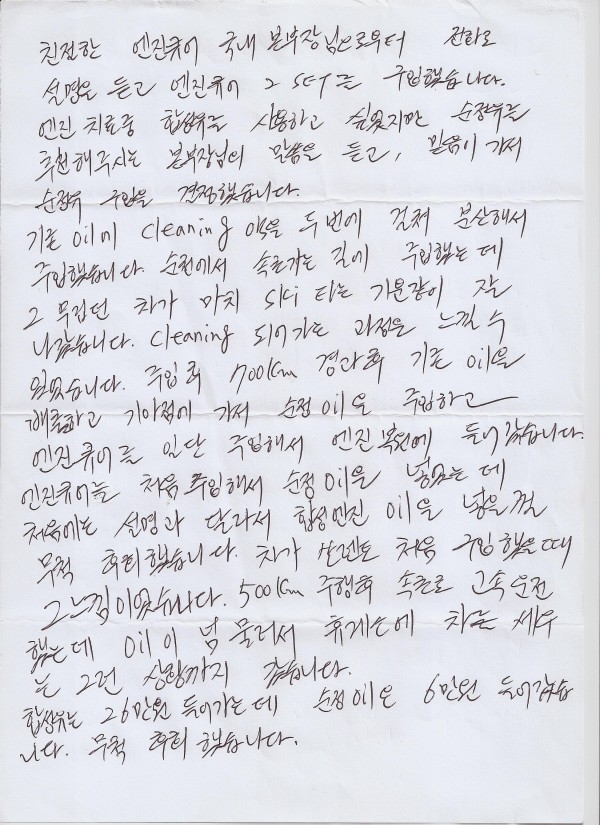 친절한 엔진큐어 국내 본부장님으로부터 전화로
설명을 듣고 엔진큐어 2 SET를 구입했습니다.
엔진 치료중 합성유를 사용하고 싶었지만 순정유를
추천해주시는 본부장님의 말씀을 듣고, 믿음이 가서
순정유 구입을 결정했습니다.
기존 oil에 cleaning 액을 두번에 걸쳐 분산해서
주입했습니다. 순천에서 속초가는 길에 주입했는데
그 무겁던 차가 마치 ski 타는 기분같이 잘
나갔습니다. cleaning 되어가는 과정을 느낄 수
있었습니다. 주입후 700km 경과후 기존 oil을
배출하고 기아점에 가서 순정 oil을 주입하고
엔진큐어를 일단 주입해서 엔진복원에 들어갔습니다.
엔진큐어를 처음 주입해서 순정 oil을 넣었는데
처음에는 설명과 달라서 합성엔진 oil을 넣을껄
무척 후회했습니다. 차가 쏘렌토 처음 구입했을때
그느낌이었습니다. 500km 주행후 속초로 고속운전
했는데 oil이 넘 물러서 휴게소에 차를 세우
는 그런 상황까지 갔습니다.
합성유는 26만원 들어가는데 순정 oil은 6만원 들어갔습
니다. 무척 후회 했습니다.